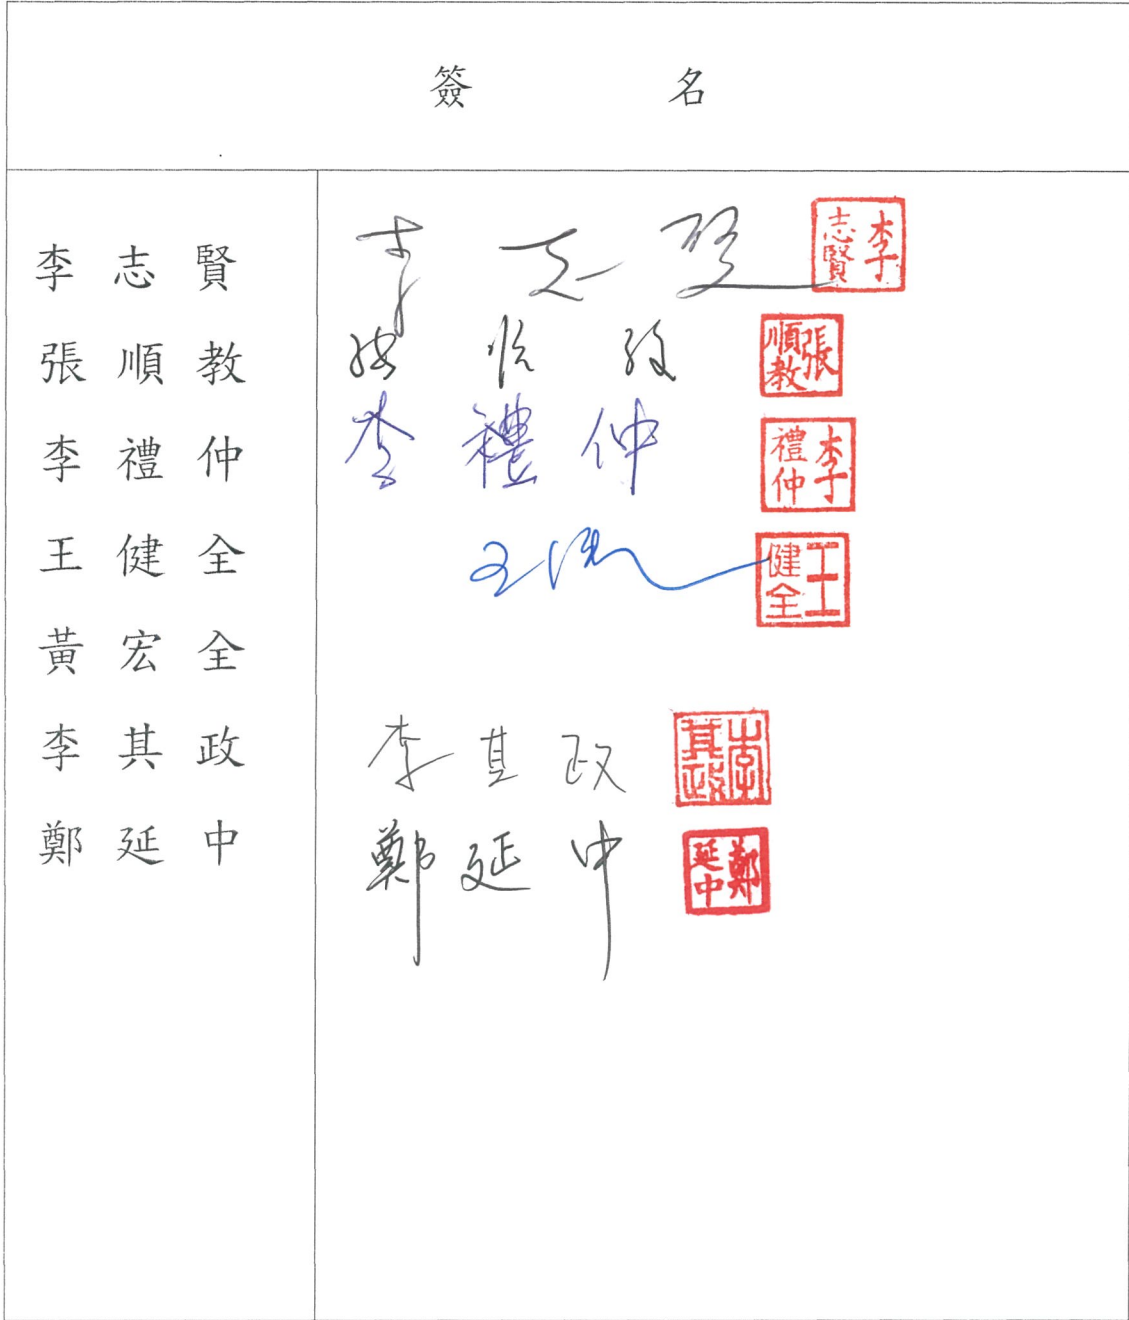 簽名
李志賢 李志賢 李志賢
張順教 張順教 張順教
李禮仲 李禮仲 李禮仲
王健全 王健全
黃宏全
李其政 李其政 李其政
鄭延中 鄭延中 鄭延中